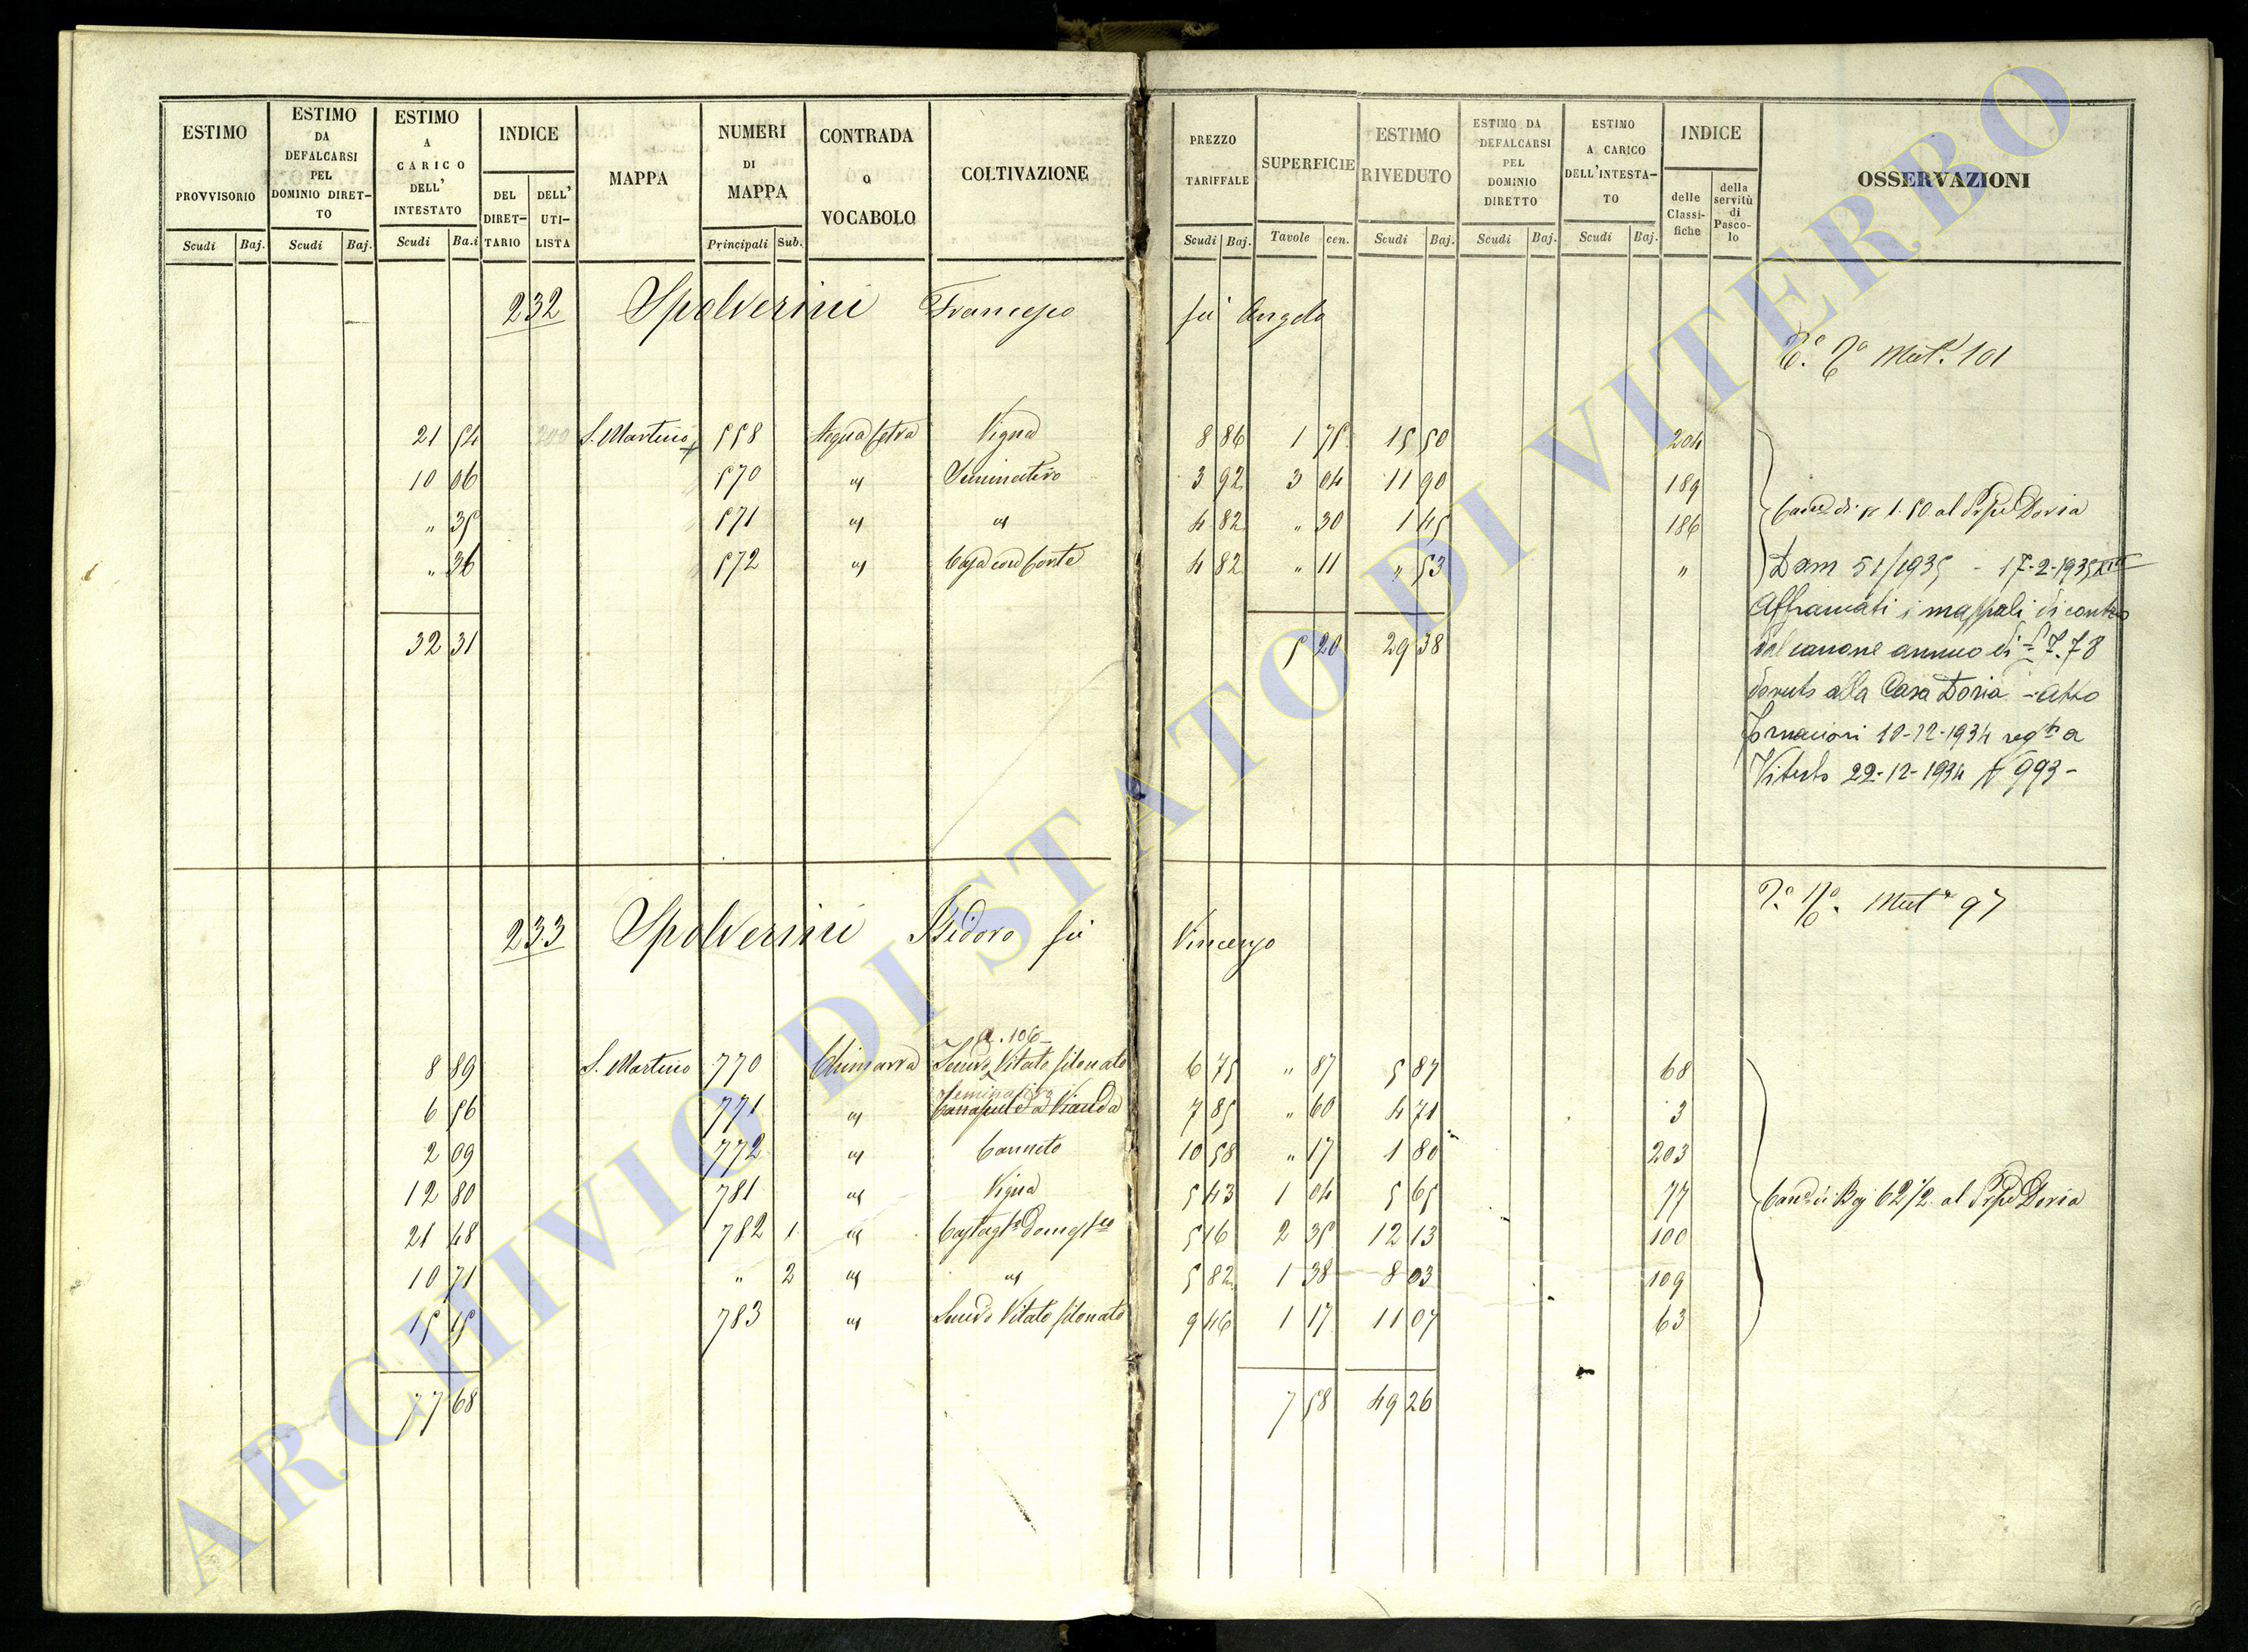 ESTIMO PROVVISORIO
ESTIMO DA DEFALCARSI PEL DOMINIO DIRET-TO
ESTIMO A CARICO DELL' INTESTATO
INDICE
DEL DIRET-TARIO
DELL' UTI-LISTA
MAPPA
NUMERI DI MAPPA
CONTRADA O VOCABOLO
COLTIVAZIONE
PREZZO TARIFFALE
SUPERFICIE
ESTIMO RIVEDUTO
ESTIMO DA DEFALCARSI PEL DOMINIO DIRETTO
ESTIMO A CARICO DELL'INTESTA-TO
INDICE
delle Classi-fiche
della servitù di Pasco-lo
OSSERVAZIONI
Scudi Baj. Scudi Baj. Scudi Ba.i Principali Sub. Scudi Baj. Tavole cen. Scudi Baj. Scudi Baj. Scudi Baj.
232 Spolverini Francesco fù Angelo
Mut.e 101
21 54 200 S. Martino 558 Acqua fetra Vigna 8 86 1 75 15 50 204
10 06 570 " Seminativo 3 92 3 04 11 90 189
" 35 571 " " 4 82 " 30 1 45 186
Can.e di 1.50 al Pripe Doria
" 36 572 " Casa con Corte 4 82 " 11 " 53 "
Dam 51/1935 - 17-2-1935 XIII
Affrancati i mappali di contro
32 31 5 20 29 38
dal canone annuo di £ 7.78
dovuto alla Casa Doria - atto
10-12-1934 reg.to a
Viterbo 22-12-1934 N 993 -
233 Spolverini Isidoro fù Vincenzo
Mut.e 97
a. 106
8 89 S. Martino 770 Chimarra Semvo Vitato filonato 6 75 " 87 5 87 68
Seminativo
6 56 771 " Canapule da Vianda 7 85 " 60 4 71 3
2 09 772 " Canneto 10 58 " 17 1 80 203
12 80 781 " Vigna 5 43 1 04 5 65 77
Can.e di Baj 62 1/2 al Pripe Doria
21 48 782 1 " Castagto Domestco 5 16 2 35 12 13 100
10 71 " 2 " " 5 82 1 38 8 03 109
15 15 783 " Semvo Vitato filonato 9 46 1 17 11 07 63
77 68 7 58 49 26
ARCHIVIO DI STATO DI VITERBO